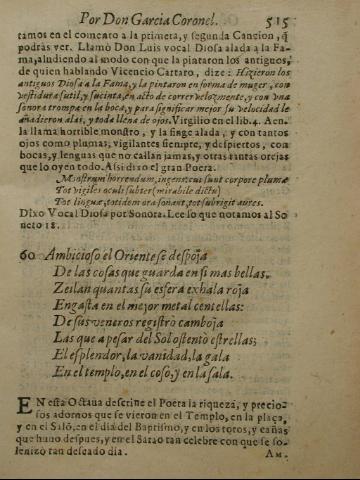 Por Don Garcia Coronel. 515
tamos en el comento a la primera, y segunda Cancion, q̃
podràs ver. Llamò Don Luis vocal Diosa alada a la Fa-
ma, aludiendo al modo con que la pintaron los antiguos,
de quien hablando Vicencio Cartaro, dize: Hizieron los
antiguos Diosa a la Fama, y la pintaron en forma de muger, con
vestidura sutil, y sucinta, en acto de correr velozmente, y con vna
sonora trompa en la boca, y para significar mejor su velocidad le
añadieron alas, y toda llena de ojos. Virgilio en el lib. 4. Aen.
la llama horrible monstro, y la finge alada, y con tantos
ojos como plumas, vigilantes siempre, y despiertos, con
bocas, y lenguas que no callan jamas, y otras tantas orejas
que lo oyen todo. Assi dixo el gran Poera.
Monstrum horrendum, ingens cui sunt corpore plumæ
Tot vigiles oculi subter (mirabile dictu)
Tot linguæ, totidem ora sonant, tot subrigit aures.
Dixo Vocal Diosa por Sonora. Lee lo que notamos al So
neto 18.
60 Ambicioso el Oriente se despoja
De las cosas que guarda en si mas bellas,
Zeilan quantas su esfera exhala roja
Engasta en el mejor metal centellas:
De sus veneros registrò camboja
Las que a pesar del Sol ostentò estrellas;
El esplendor, la vanidad, la gala
En el templo, en el coso, y en la sala.
EN esta Octaua descriue el Poeta la riqueza, y precio-
sos adornos que se vieron en el Templo, en la plaça,
y en el Salõ, en el dia del Baptismo, y en los toros, y cañas
que huuo despues, y en el Sarao tan celebre con que se so-
lenizò tan deseado dia. AM.